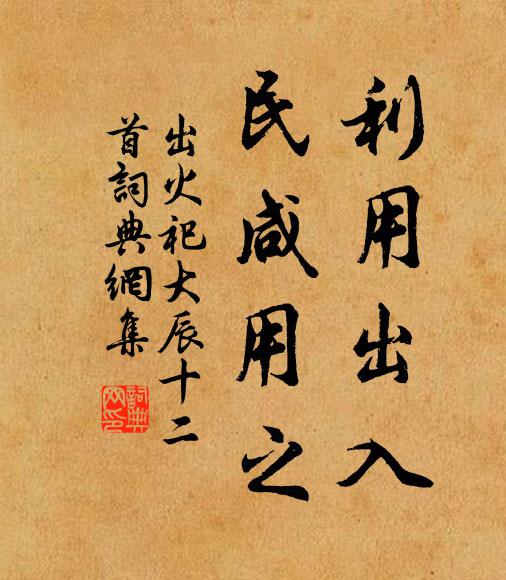 利用出入
民咸用之
出火祀大辰十二
首詞典網集
詞典网印